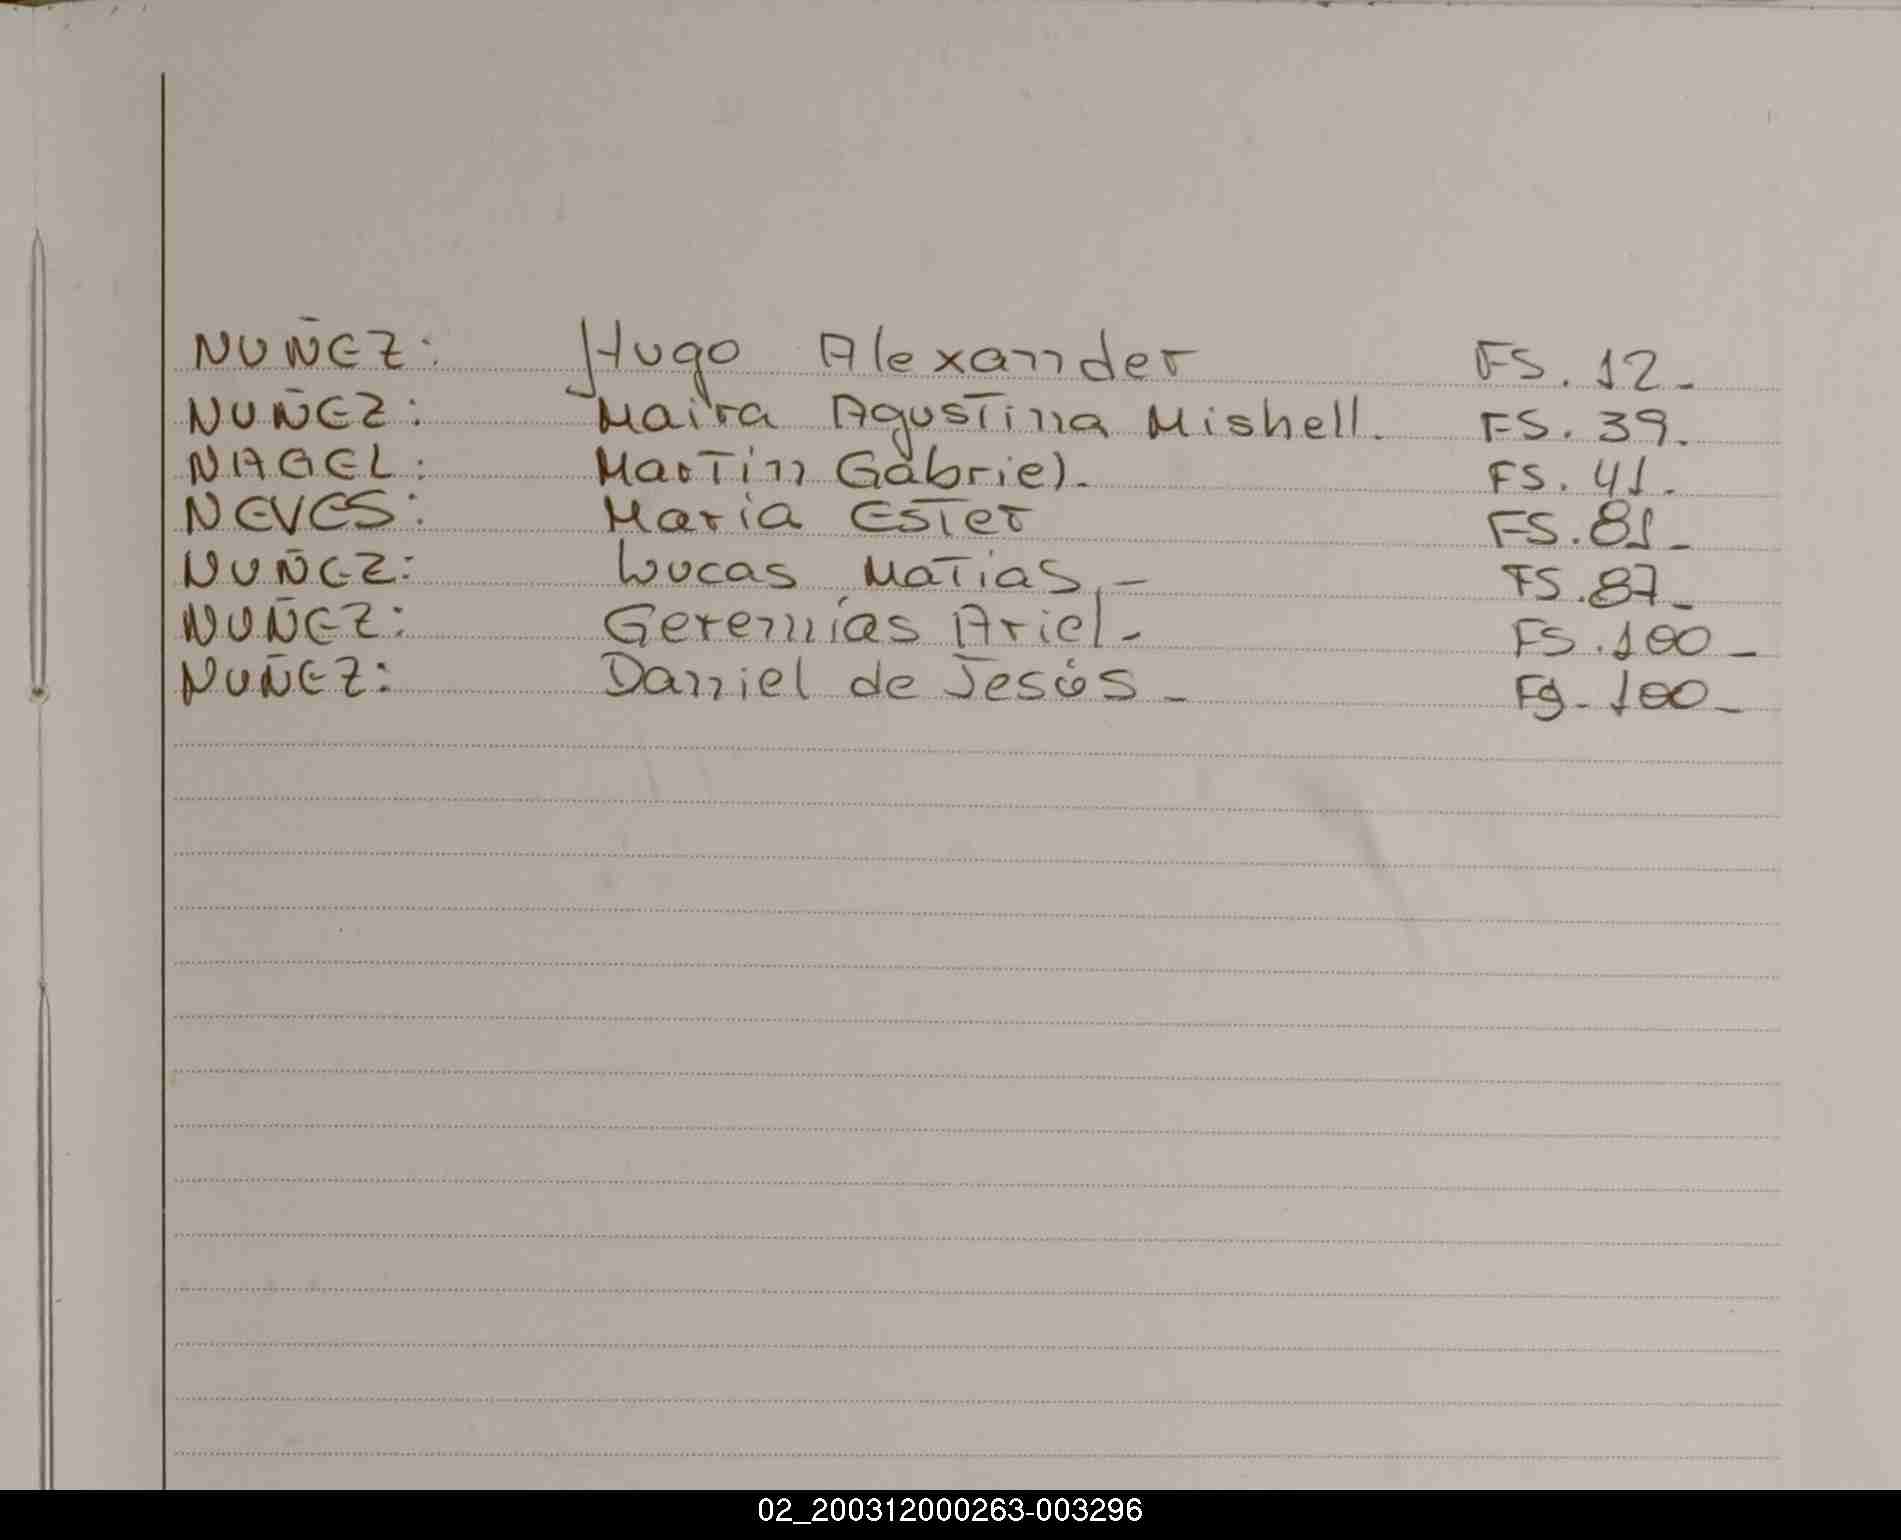 NUÑEZ: Hugo Alexander FS. 12_
NUÑEZ: Maira Agustina Mishell. FS. 39.
NAGEL: Martin Gabriel. FS. 41.
NEVES: Maria Ester FS. 81_
NUÑEZ: Lucas Matias _ FS. 87_
NUÑEZ: Geremías Ariel _ FS. 100_
NUÑEZ: Daniel de Jesús _ Fs. 100_
02_200312000263-003296